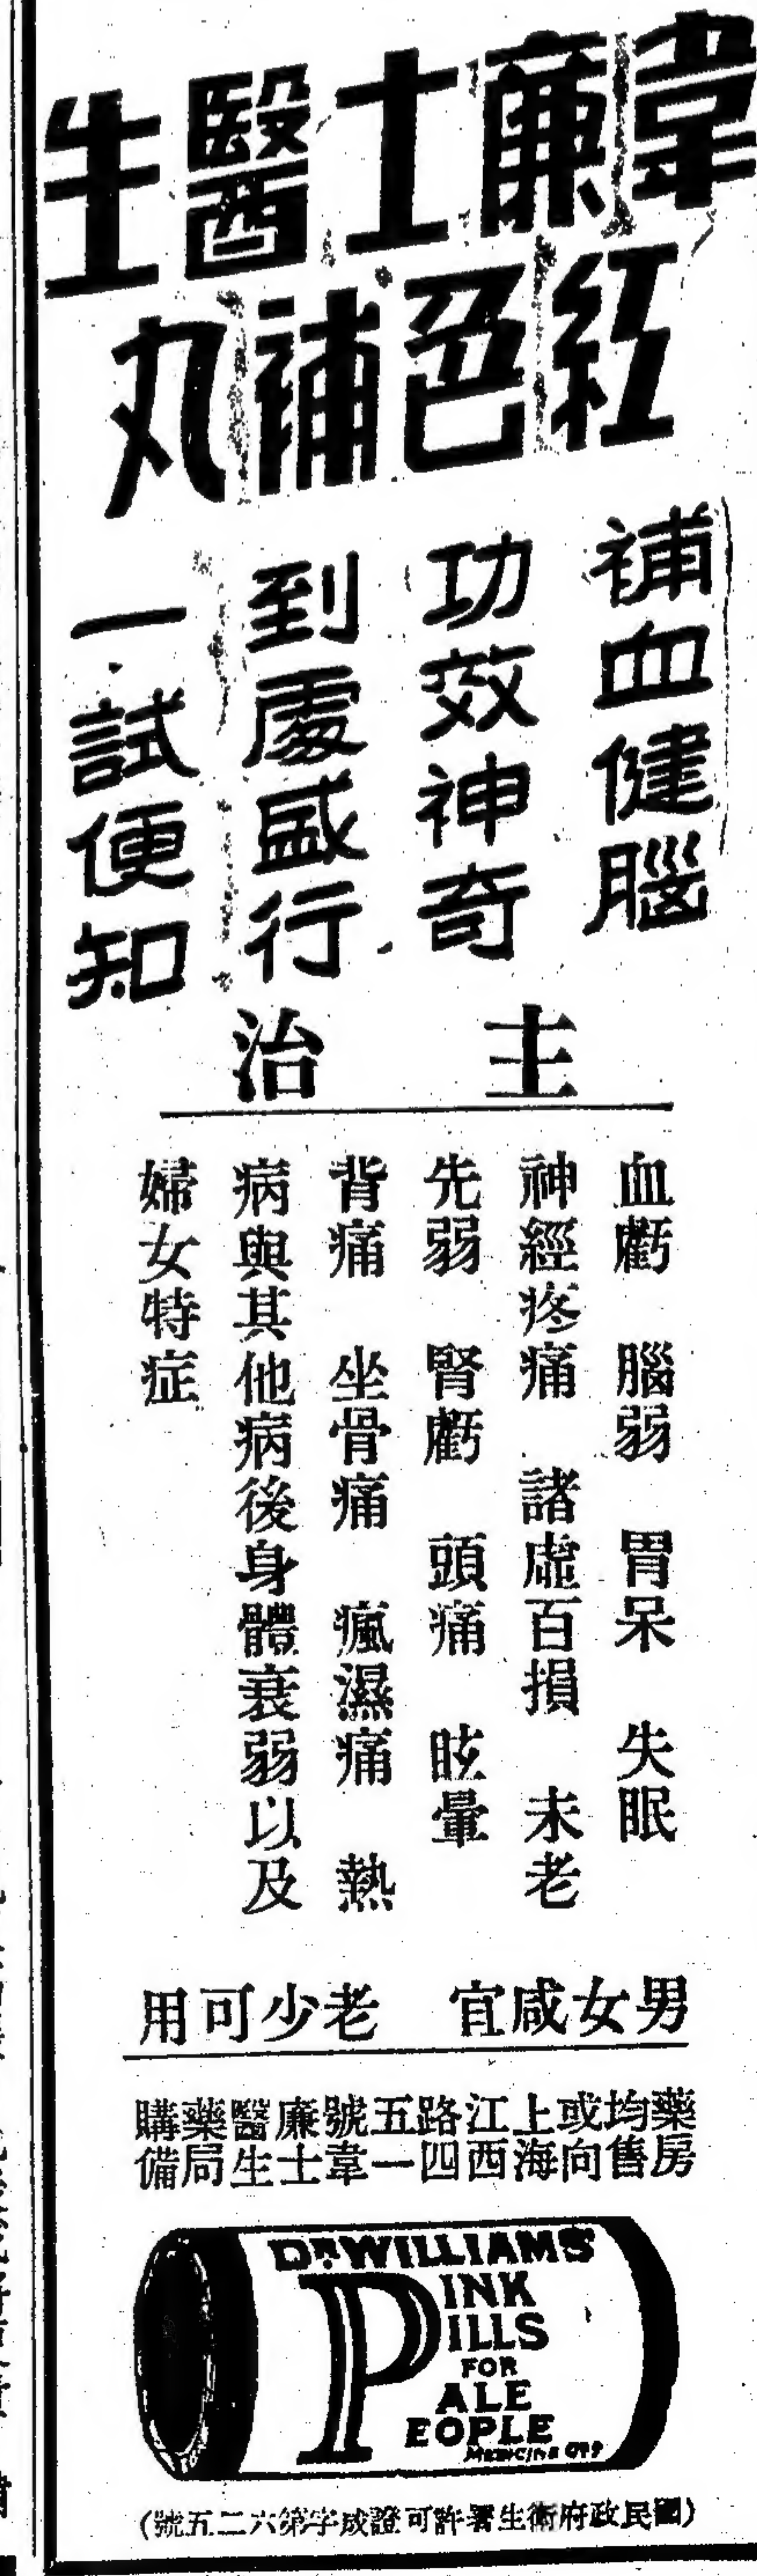 韋廉士醫生
紅色補丸
補血健腦
功效神奇
到處盛行
一試便知
主治
血虧 腦弱 胃呆 失眠
神經疼痛 諸虛百損 未老
先弱 腎虧 頭痛 眩暈
背痛 坐骨痛 瘋濕痛 熱
病與其他病後身體衰弱以及
婦女特症
男女咸宜 老少可用
藥房均售或向上海江西路四五一號韋廉士醫生藥局購備
DR. WILLIAMS'
PINK
PILLS
FOR
PALE
PEOPLE
MEDICINE
(國民政府衛生署許可證成字第六二五號)